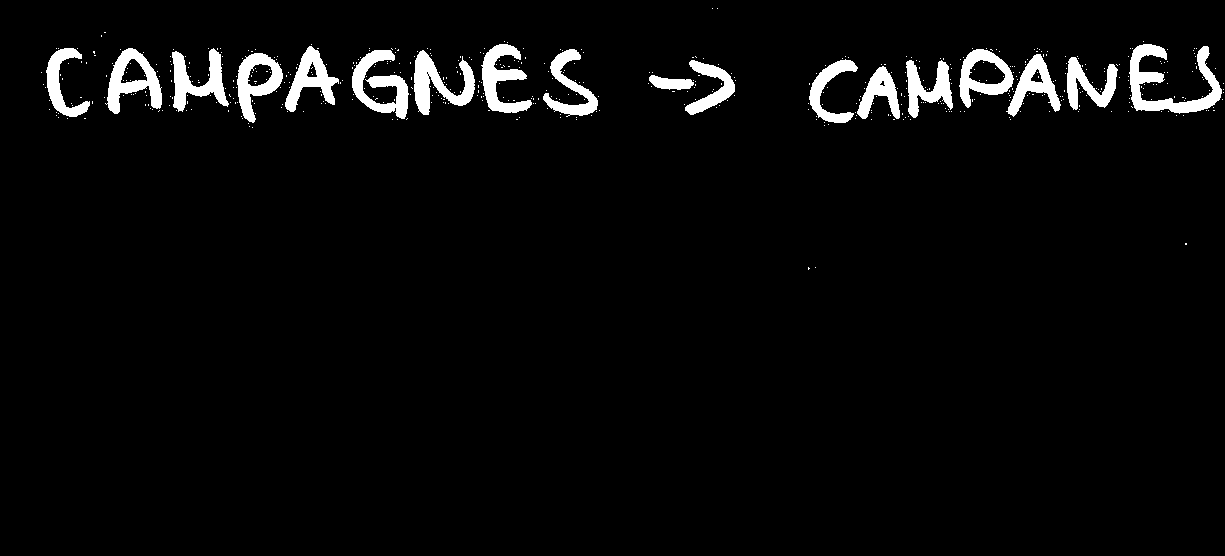 CAMPAGNES → CAMPANES